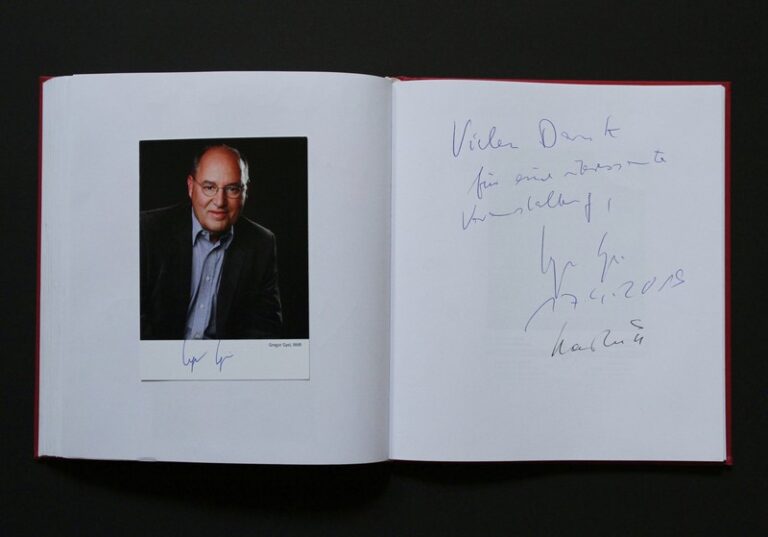 Gregor Gysi, MdB
Gregor Gysi
Vielen Dank
für eine interessante
Veranstaltung,
Gregor Gysi
17.4.2019